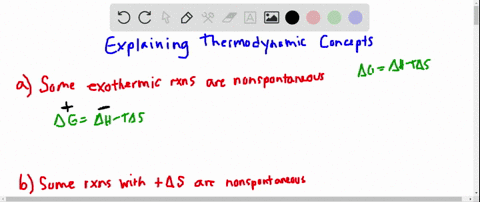 Explaining Thermodynamic Concepts
a) Some exothermic rxns are nonspontaneous
ΔG = ΔH-TΔS
+ −
ΔG = ΔH-TΔS
b) Some rxns with +ΔS are nonspontaneous